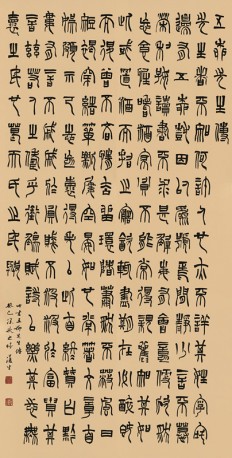 五柳先生傳
先生者不知何許人也亦不詳其姓字宅
邊有五柳樹因以爲號焉閑靜少言不慕
榮利好讀書不求甚解每有會意便欣然
忘食性嗜酒家貧不能常得親舊知其如
此或置酒而招之造飲輒盡期在必醉既
醉而退曾不吝情去留環堵蕭然不蔽風
日短褐穿結簞瓢屢空晏如也常著文章自
娛頗示己志忘懷得失以此自終贊曰黔
婁有言不戚戚於貧賤不汲汲於富貴其
言茲若人之儔乎銜觴賦詩以樂其志無
懷氏之民歟葛天氏之民歟
五柳先生傳